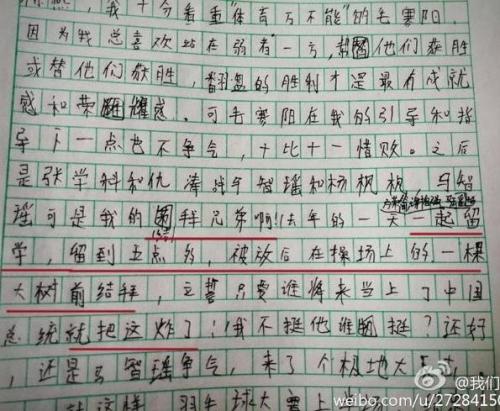 我十分看重"体育万不能"的毛寒阳.
因为我总喜欢站在弱者一方,帮他们获胜
或替他们获胜,翻盘的胜利才是最有成就
感和荣耀感.可毛寒阳在我的引导和指
导下一点也不争气,十比十一惜败.之后
是张学科和仇涛战马智瑶和杨枫枫,马智
瑶可是我的结拜兄弟啊!(去年的一天一起留
学,留到五点多,被放后在操场上的一棵
大树前结拜,立誓只要谁将来当上了中国
总统就把这炸了!)我不挺他谁挺?还好
,还是马智瑶争气,来了个极地大反
羽毛球大赛上
@我们
weibo.com/u/27284150